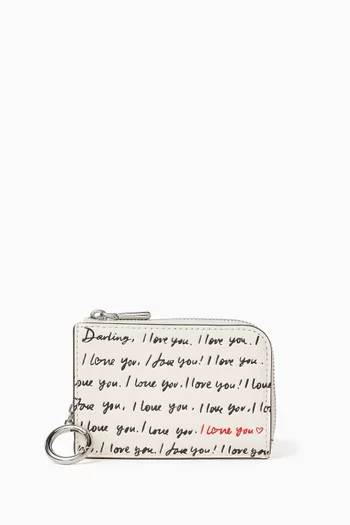 Darling, I love you. I love you. I
I love you, I love you! I love you.
love you. I love you, I love you! I love
love you, I love you. I love you, I lo
you. I love you, I love you. I love you♡
you. I love you. I love you! I love you.